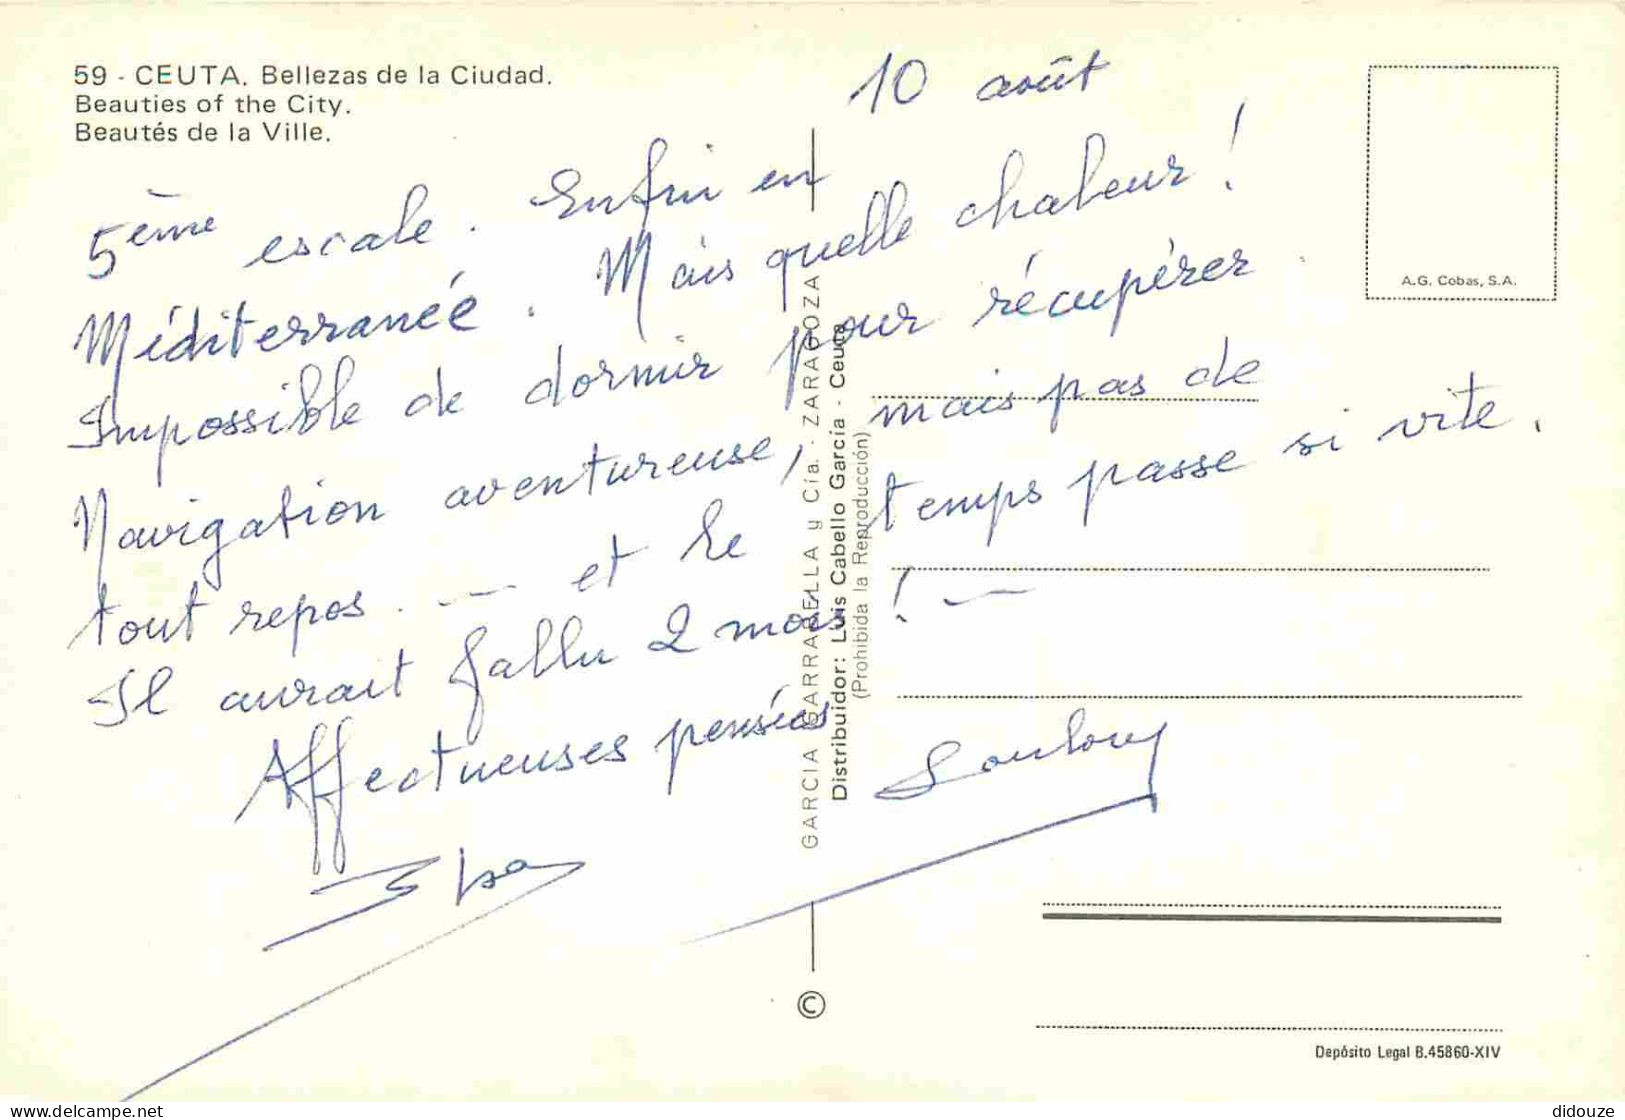 59 - CEUTA. Bellezas de la Ciudad.
Beauties of the City.
Beautés de la Ville.
10 août
5ème escale. Enfin en
Méditerranée. Mais quelle chaleur !
Impossible de dormir pour récupérer.
Navigation aventureuse, mais pas de
tout repos. — et le temps passe si vite.
Il aurait fallu 2 mois ! —
Affectueuses pensées
A.G. Cobas, S.A.
GARCIA GARRABELLA y Cía. - ZARAGOZA
Distribuidor: Luis Cabello García - Ceuta
(Prohibida la Reproducción)
©
Depósito Legal B.45860-XIV
delcampe.net
didouze